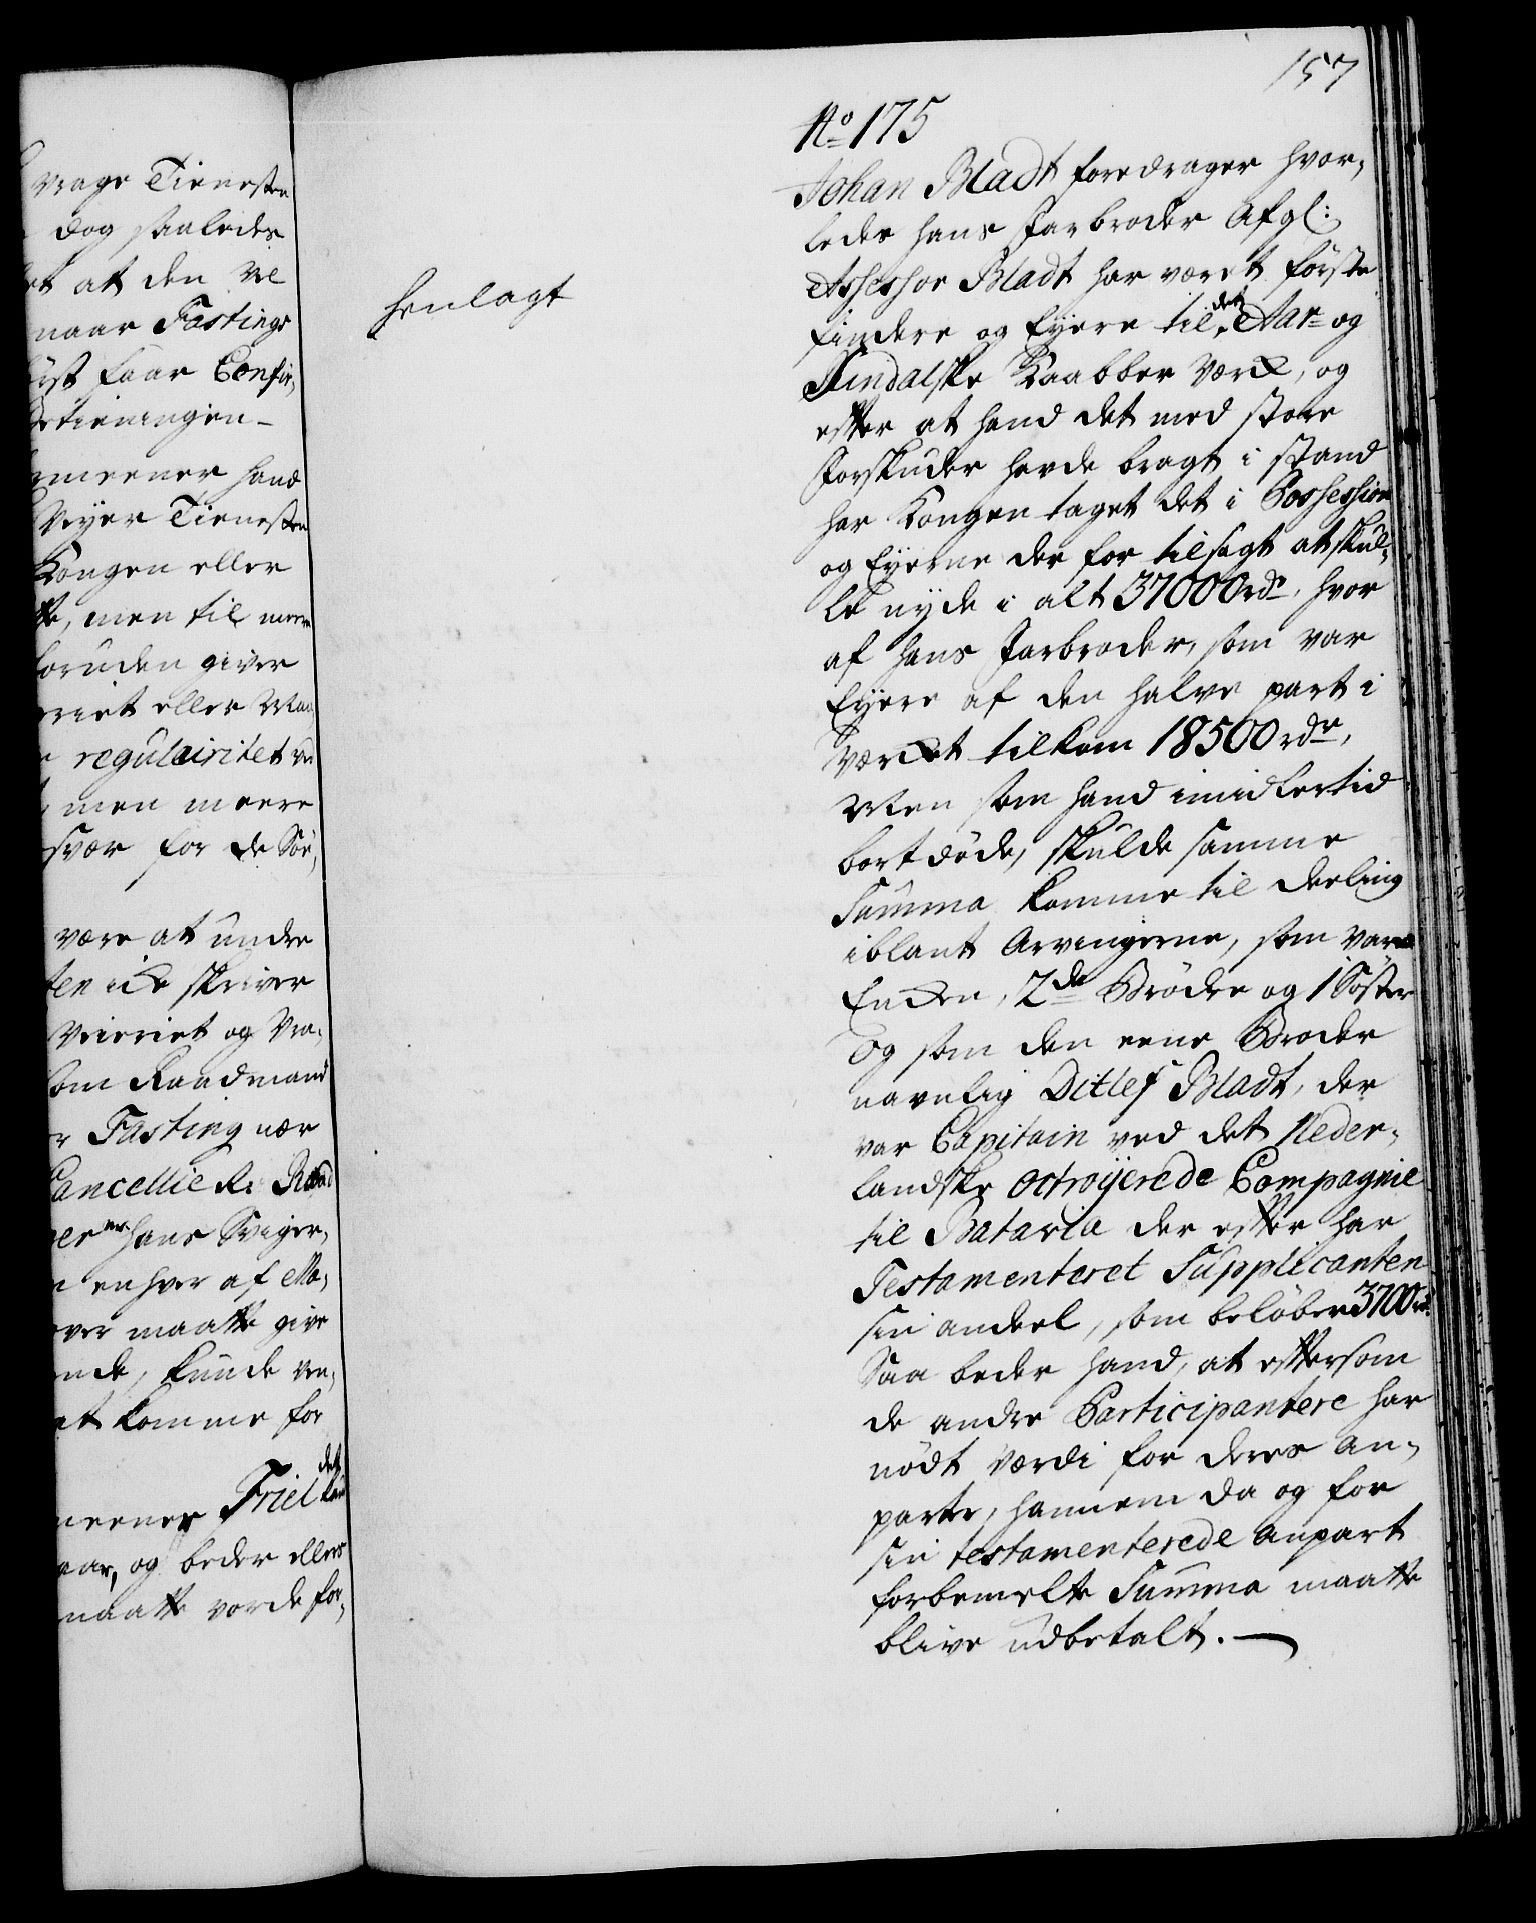 vrage Tienesten
dog saaledes
et at den vil
naar Fastings
ist faar Confir,
betieningen -
meener hand
Viyer Tienesten
Kongen eller
te, men til meere
foruden giver
eriet eller
regulairitet
men meere
svær for de Sör,
være at undre
ten icke skriver
Vrieriet og Vra,
som Raadmand
Fasting nær
Cancellie R: Raad
hans Sviger,
enhver af Ma,
over maatte give
nde, kunde
at komme for
det
meener Friel kand
aar, og beder ellers
maatte vorde for,
henlagt
157
No 175
Johan Madt foredrager hvor,
ledes hans Farbroder Afgl:
Assessor Madt har været förste
findere og Eyere til det Aar- og
Sundalske Kaabber Værck, og
efter at hand det med store
Forskuder havde bragt i stand
har Kongen taget det i Possession
og Eyerne der for tilsagt at skul,
le nyde i alt 37000 rdr, hvor
af hans Farbroder, som var
Eyere af den halve part i
Værcket tilkom 18500 rdr,
Men som hand imidlertid
bort döde, skulde samme
Summa komme til deeling
iblant Arvingerne, som vare
Encken, 2de Brödre og 1 Söster
Og som den eene Broder
navnlig Ditlef Madt, der
var Capitain ved det Neder,
landske octroijerede Compagnie
til Batavia der efter har
Testamenteret Supplicanten
sin andeel, som belöber 3700 rd.
Saa beder hand, at eftersom
de andre Participantere har
nödt værdi for deres an,
parter, hannem da og for
sin testamenterede anpart
forbemelte Summa maatte
blive udbetalt. —